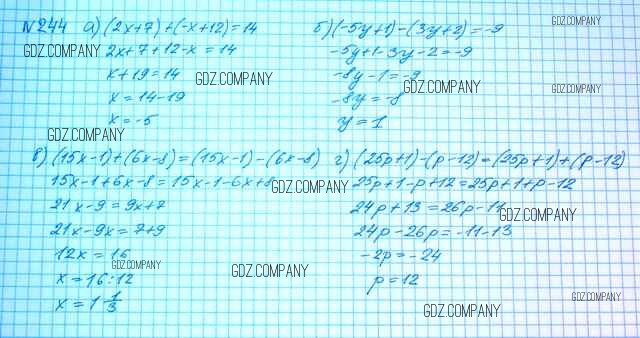 №244 а) (2x+7)+(-x+12)=14
2x+7+12-x=14
x+19=14
x=14-19
x=-5
б) (-5y+1)-(3y+2)=-9
-5y+1-3y-2=-9
-8y-1=-9
-8y=-8
y=1
в) (15x-1)+(6x-8)=(15x-1)-(6x-8)
15x-1+6x-8=15x-1-6x+8
21x-9=9x+7
21x-9x=7+9
12x=16
x=16:12
x=1 1/3
г) (25p+1)-(p-12)=(25p+1)+(p-12)
25p+1-p+12=25p+1+p-12
24p+13=26p-11
24p-26p=-11-13
-2p=-24
p=12
GDZ.COMPANY
GDZ.COMPANY
GDZ.COMPANY
GDZ.COMPANY
GDZ.COMPANY
GDZ.COMPANY
GDZ.COMPANY
GDZ.COMPANY
GDZ.COMPANY
GDZ.COMPANY
GDZ.COMPANY
GDZ.COMPANY